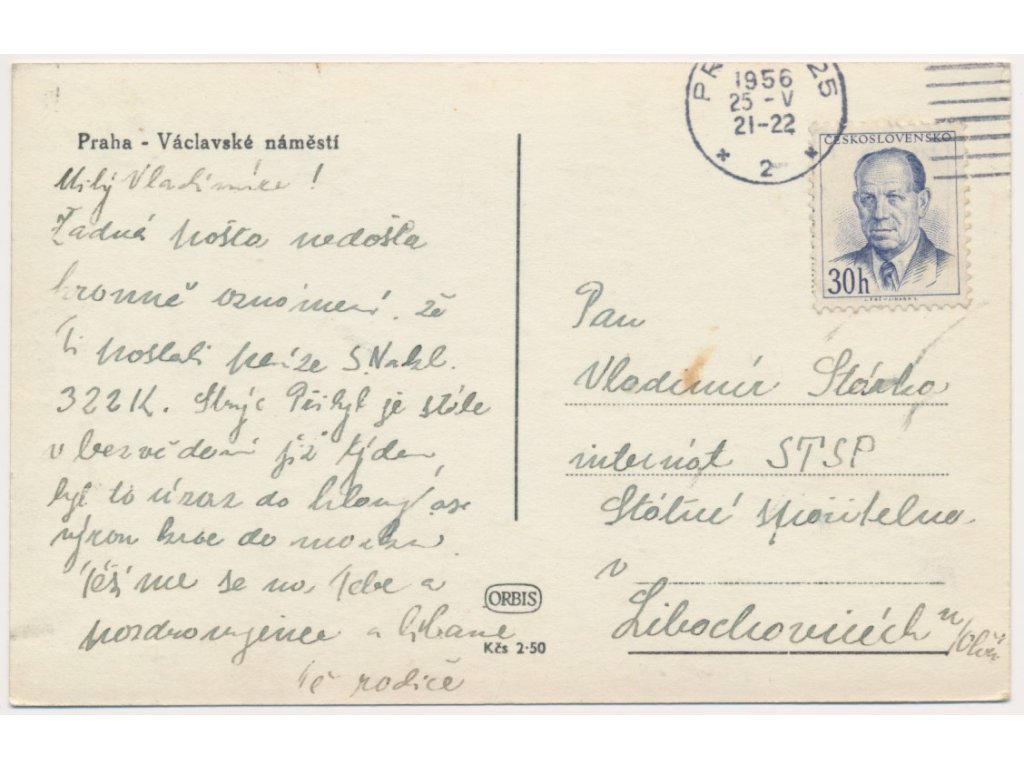 Praha - Václavské náměstí
Milý Vladimíre!
Žádná pošta nedošla
kromně oznámení, že
Ti poslali peníze S. Nakl.
322 K. Strýc Přibyl je stále
v bezvědomí již týden
byl to úraz do hlavy ase
výron krve do mozku.
Těšíme se na Tebe a
pozdravujeme a líbáme
Tě rodiče
ORBIS
Kčs 2·50
1956
25 -V
21-22
2
25
ČESKOSLOVENSKO
30h
Pan
Vladimír Stárka
internát STSP
Státní spořitelna
v
Libochovicích n/Ohří